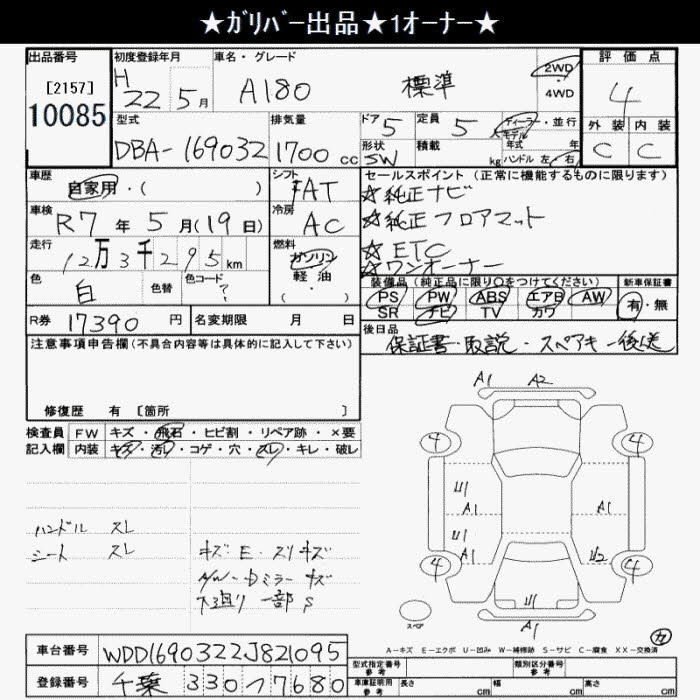 ★ｶﾞﾘﾊﾞｰ出品★1オーナー★
出品番号
[2157]
10085
初度登録年月
H 22 5月
車名・グレード
A180 標準
2WD
・
4WD
評価点
4
外装 内装
C C
型式
DBA-169032
排気量
1700 cc
ドア 5
定員 5
形状 SW
積載 kg
ディーラー・並行
モデル年式 年
ハンドル 左・右
車歴
自家用・( )
シフト
FAT
車検
R7年5月(19日)
冷房
AC
走行
12万3千295km
燃料
ガソリン
軽油・
色
白
色替
色コード
?
セールスポイント (正常に機能するものに限ります)
☆純正ナビ
☆純正フロアマット
☆ETC
☆ワンオーナー
装備品(純正品に限り○をつけてください)
PS PW ABS エアB AW
SR ナビ TV カワ
新車保証書
有・無
R券 17390円
名変期限 月 日
後日品
保証書・取説・スペアキー後送
注意事項申告欄(不具合内容等は具体的に記入して下さい)
修復歴 有 [箇所 ]
検査員
記入欄
FW キズ・飛石・ヒビ割・リペア跡・×要
内装 キズ・汚レ・コゲ・穴・スレ・キレ・破レ
ハンドル スレ
シート スレ
キズ・E・スリキズ
A/W・Dミラーキズ
下廻り一部S
A1 A2
4 4
U1 A1 A1
U1 A1 U2
4 4
U1
A1
スペア
A-キズ E-エクボ U-凹み W-補修跡 S-サビ C-腐食 XX-交換済
車台番号
WDD1690322J821095
登録番号
千葉 330 つ 7680
型式指定番号
参考
類別区分番号
参考
車庫証明用
参考
長さ cm 幅 cm 高さ cm